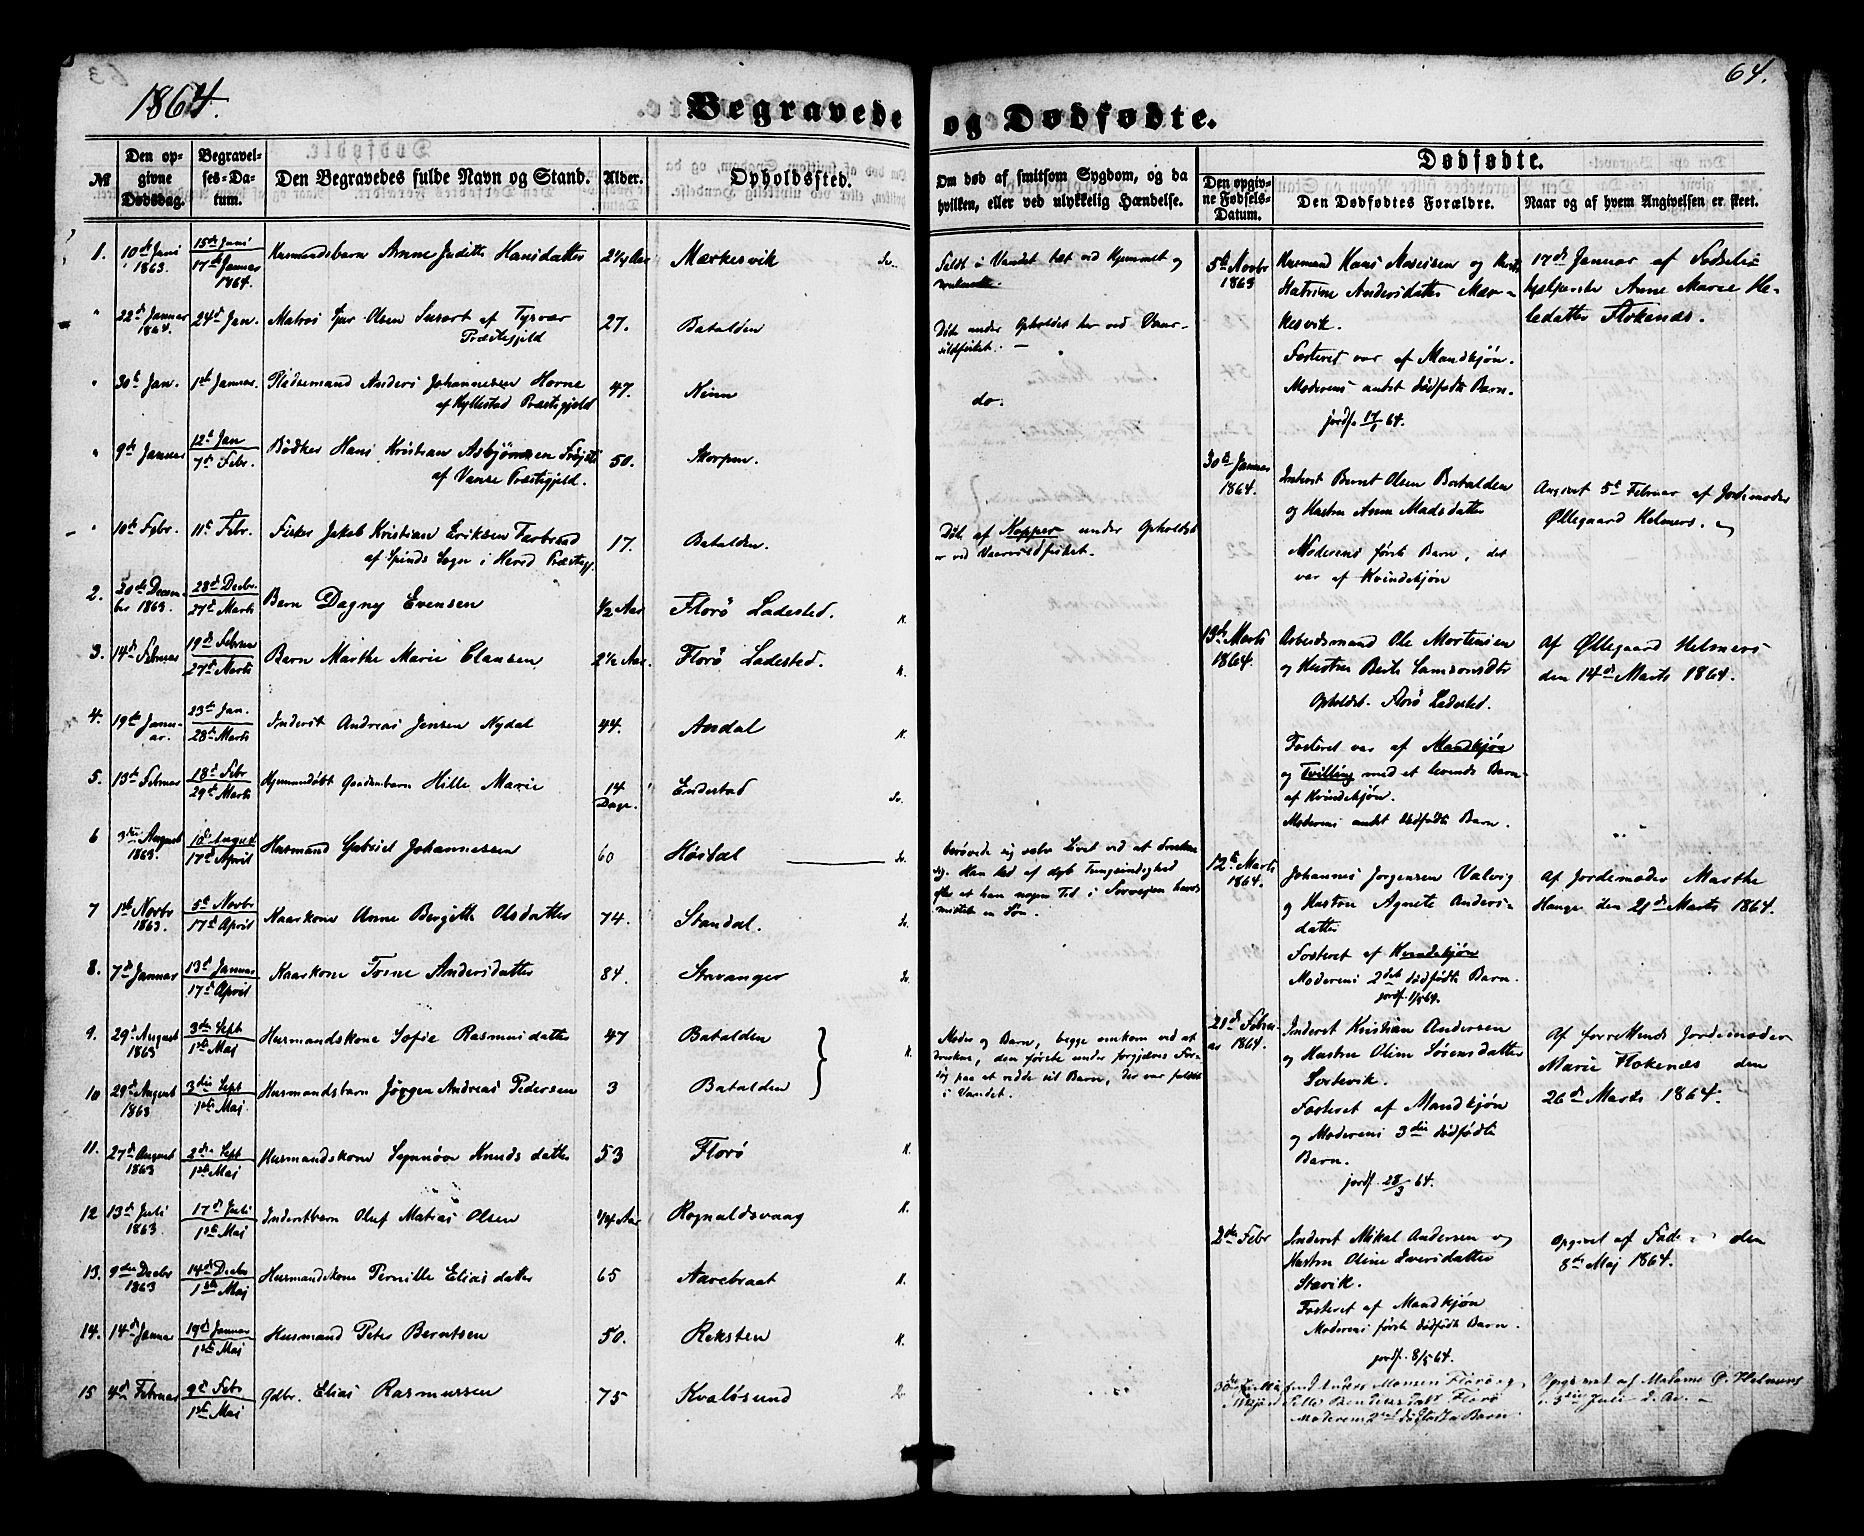 1864.
Begravede og Dødfødte.
64.
№
Den opgivne Dødsdag.
Begravelses-Datum.
Den Begravedes fulde Navn og Stand.
Alder.
Opholdssted.
Om død af smitsom Sygdom, og da hvilken, eller ved ulykkelig Hændelse.
Dødfødte.
Den opgivne Fødsels-Datum.
Den Dødfødtes Forældre.
Naar og af hvem Angivelsen er skeet.
1. 10de Juni 1863. 15de Juni 17de Januar 1864. Husmandsbarn Anne Judithe Hansdatter 2¼ Aar Markesvik
Faldt i Vandet tæt ved Hjemmet og
22de Januar 1864. 24de Jan. Matros Olsen af Tysvær 27. Batalden
Præstegjeld
Døde under Opholdet her ved Vaar-
sildfisket.
30te Jan. 1ste Januar. Pladsemand Anders Johannesen Horne 47. Kinn
af Hyllestad Præstegjeld
do.
9de Januar 12te Jan 7de Febr. Bødker Hans Kristian Asbjørnsen 50. Skorpen.
af Vanse Præstegjeld.
10de Febr. 11te Febr. Fisker Jakob Kristian Eriksen 17. Batalden.
af Spinds Sogn i Herred Præstegj.
Døde af Kopper under Opholdet
her ved Vaarsildfisket.
2. 20de Decem-ber 1863. 28de Decbr. 27de Marts Barn Dagny Evensen ½ Aar Florø Ladested. K.
3. 14de Februar 19de Februar 27de Marts Barn Marthe Marie Clausen 2½ Aar. Florø Ladested. K.
4. 19de Janu-ar. 23de Jan. 28de Marts Inderst Andreas Jensen Nydal 44. Aasdal K.
5. 13de Februar 18de Febr 29de Marts Hjemmedøbt Gaardmbarn Hille Marie 14 Dage. Endestad
6 3die August 1863. 10de August 17de April Husmand Gabriel Johannessen 60 Høidal
berøvede sig selv Livet ved at drukne
sig. Han led af dyb Tungsindighed
efter at han nogen Tid i Forveien havde
mistet en Søn.
7 1ste Novbr 1863. 5te Novbr 17de April Kaarkone Anne Bergitte Olsdatter 74. Standal.
8. 7de Januar 13de Januar 17de April Kaarkone Andersdatter 84. Stavanger
9. 29de August 1863 3die Sept 1ste Maj Husmandskone Sofie Rasmusdatter 47 Batalden K.
Moder og Barn, begge omkom ved at
drukne, den første under forgjæves For-
søg paa at redde sit Barn, der var faldet
i Vandet.
10 29de August 1863 3die Sept 1ste Maj Husmandsbarn Jørgen Andreas Pedersen 3 Batalden
11. 27de August 1863 2den Sept 1ste Maj Husmandskone Synnøve Knudsdatter 53 Florø K.
12 13de Juli 1863. 17de Juli 1ste Maj Inderstbarn Oluf Matias Olsen ¼ Aar Rognaldsvaag K.
13. 9de Decbr 1863 14de Decbr 1ste Maj Husmandskone Pernille Eliasdatter 65 Aarebraat K.
14. 14de Janua 19de Januar 1ste Maj Husmand Peter Berntsen 50. Reksten K.
15 4de Februar 9de Febr 1ste Maj Gdbr. Elias Rasmussen 75 Kvaløsund
5te Novbr 1863 Husmand Hans Mosessen og Hustru
Katrine Andersdatter Mar-
kesvik.
Fosteret var af Mandkjøn.
Moderens andet dødfødte Barn.
jordf. 17/1 64.
17de Januar af Fødsels-
hjelperske Anne Marie He-
ledatter Flokenæs.
30te Januar 1864. Inderst Bernt Olsen Batalden
og Hustru Anne Madsdatter
Moderens første Barn, det
var af Kvindekjøn
Angivet 5te Februar af Jordemoder
Øllegaard Helmers.
13de Marts 1864. Arbeidsmand Ole Mortensen
og Hustru Berthe Samsonsdtr
Opholdst. Florø Ladested.
Fosteret var af Mandkjøn
og Tvilling med et levende Barn
af Kvindekjøn.
Moderens andet dødfødte Barn.
Af Øllegaard Helmers
den 14de Marts 1864.
12te Marts 1864. Johannes Jørgensen Valvig
og Hustru Agnete Anders-
datter
Fosteret af Kvindekjøn
Moderens 2det dødfødte Barn.
jordf. 1/5 64.
Af Jordemoder Marthe
Hauge den 21de Marts 1864.
21de Febru-ar 1864. Inderst Kristian Andersen
og Hustru Oline Sørensdatter
Fosteret af Mandkjøn
og Moderens 3die dødfødte
Barn.
jordf. 28/3 64.
Af forrettende Jordemoder
Marie Flokenæs den
26de Marts 1864.
2den Febr Inderst Mikal Andersen og
Hustru Oline Iversdatter
Stavik.
Fosteret af Mandkjøn
Moderens første dødfødte Barn.
jordf. 8/5 64.
Opgivet af Fade den
8de Maj 1864.
Anders Monsen Florø og
Florø
Moderens 2det dødfødte Barn
Opgivet af Madame Ø. Helmers
3die Juli